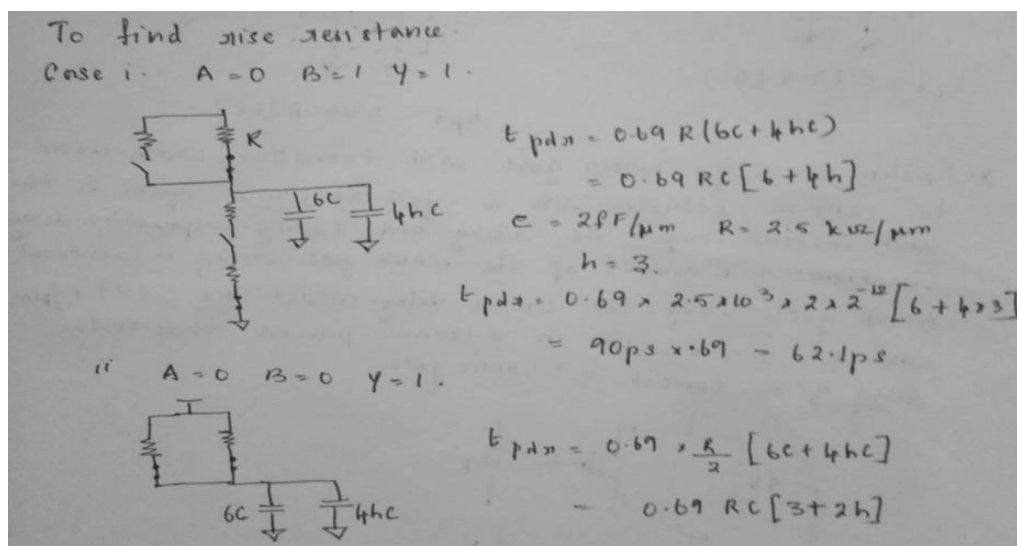 To find rise resistance.
Case i. A = 0 B = 1 Y = 1.
R
6C
4hC
t pdr = 0.69 R(6C + 4hC)
= 0.69 RC [6 + 4h]
C = 2fF/μm R = 2.5 kΩ/μm
h = 3.
t pdr = 0.69 × 2.5×10³ × 2×2⁻¹² [6 + 4×3]
= 90ps × .69 = 62.1ps.
ii A = 0 B = 0 Y = 1.
6C
4hC
t pdr = 0.69 × R/2 [6C + 4hC]
= 0.69 RC [3 + 2h]